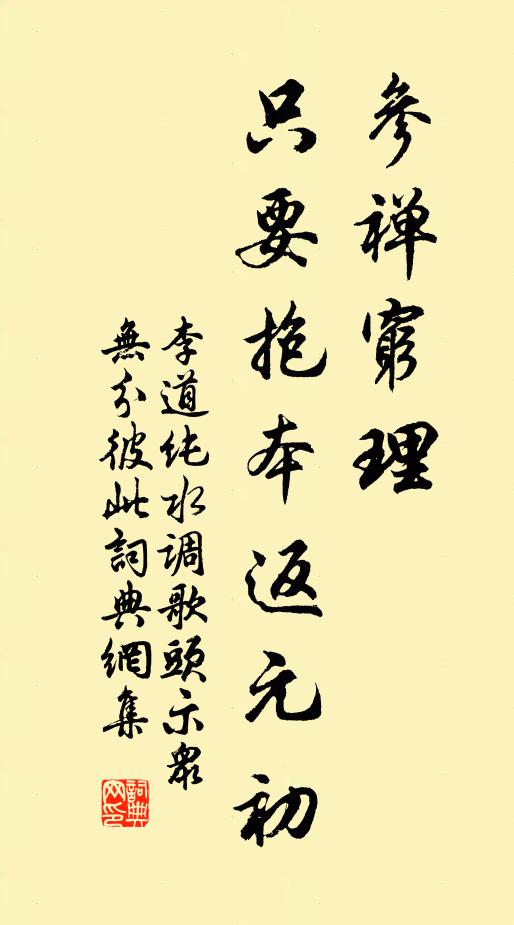 參禪窮理
只要抱本返元初
李道纯水调歌頭示眾
無分彼此詞典網集
詞典网印